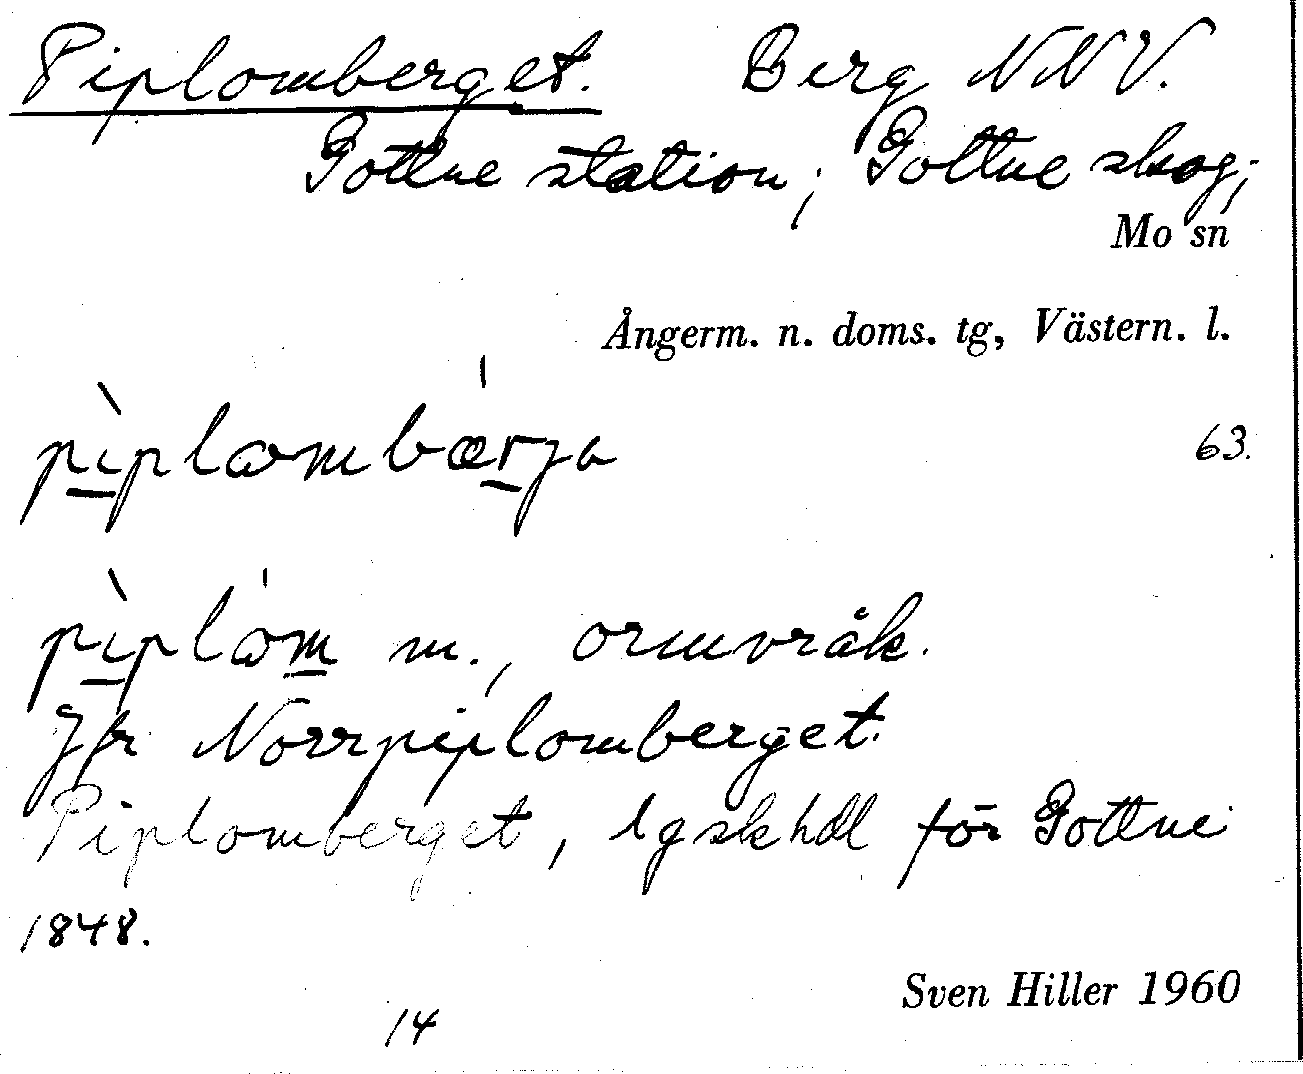 Piplomberget. Berg NNV.
Gottne station; Gottne skog;
Mo sn
Ångerm. n. doms. tg, Västern. l.
pìplombærja
63.
pìplom m., ormvråk.
Jfr Norrpiplomberget.
Piplomberget, lgskhdl för Gottne
1848.
Sven Hiller 1960
14